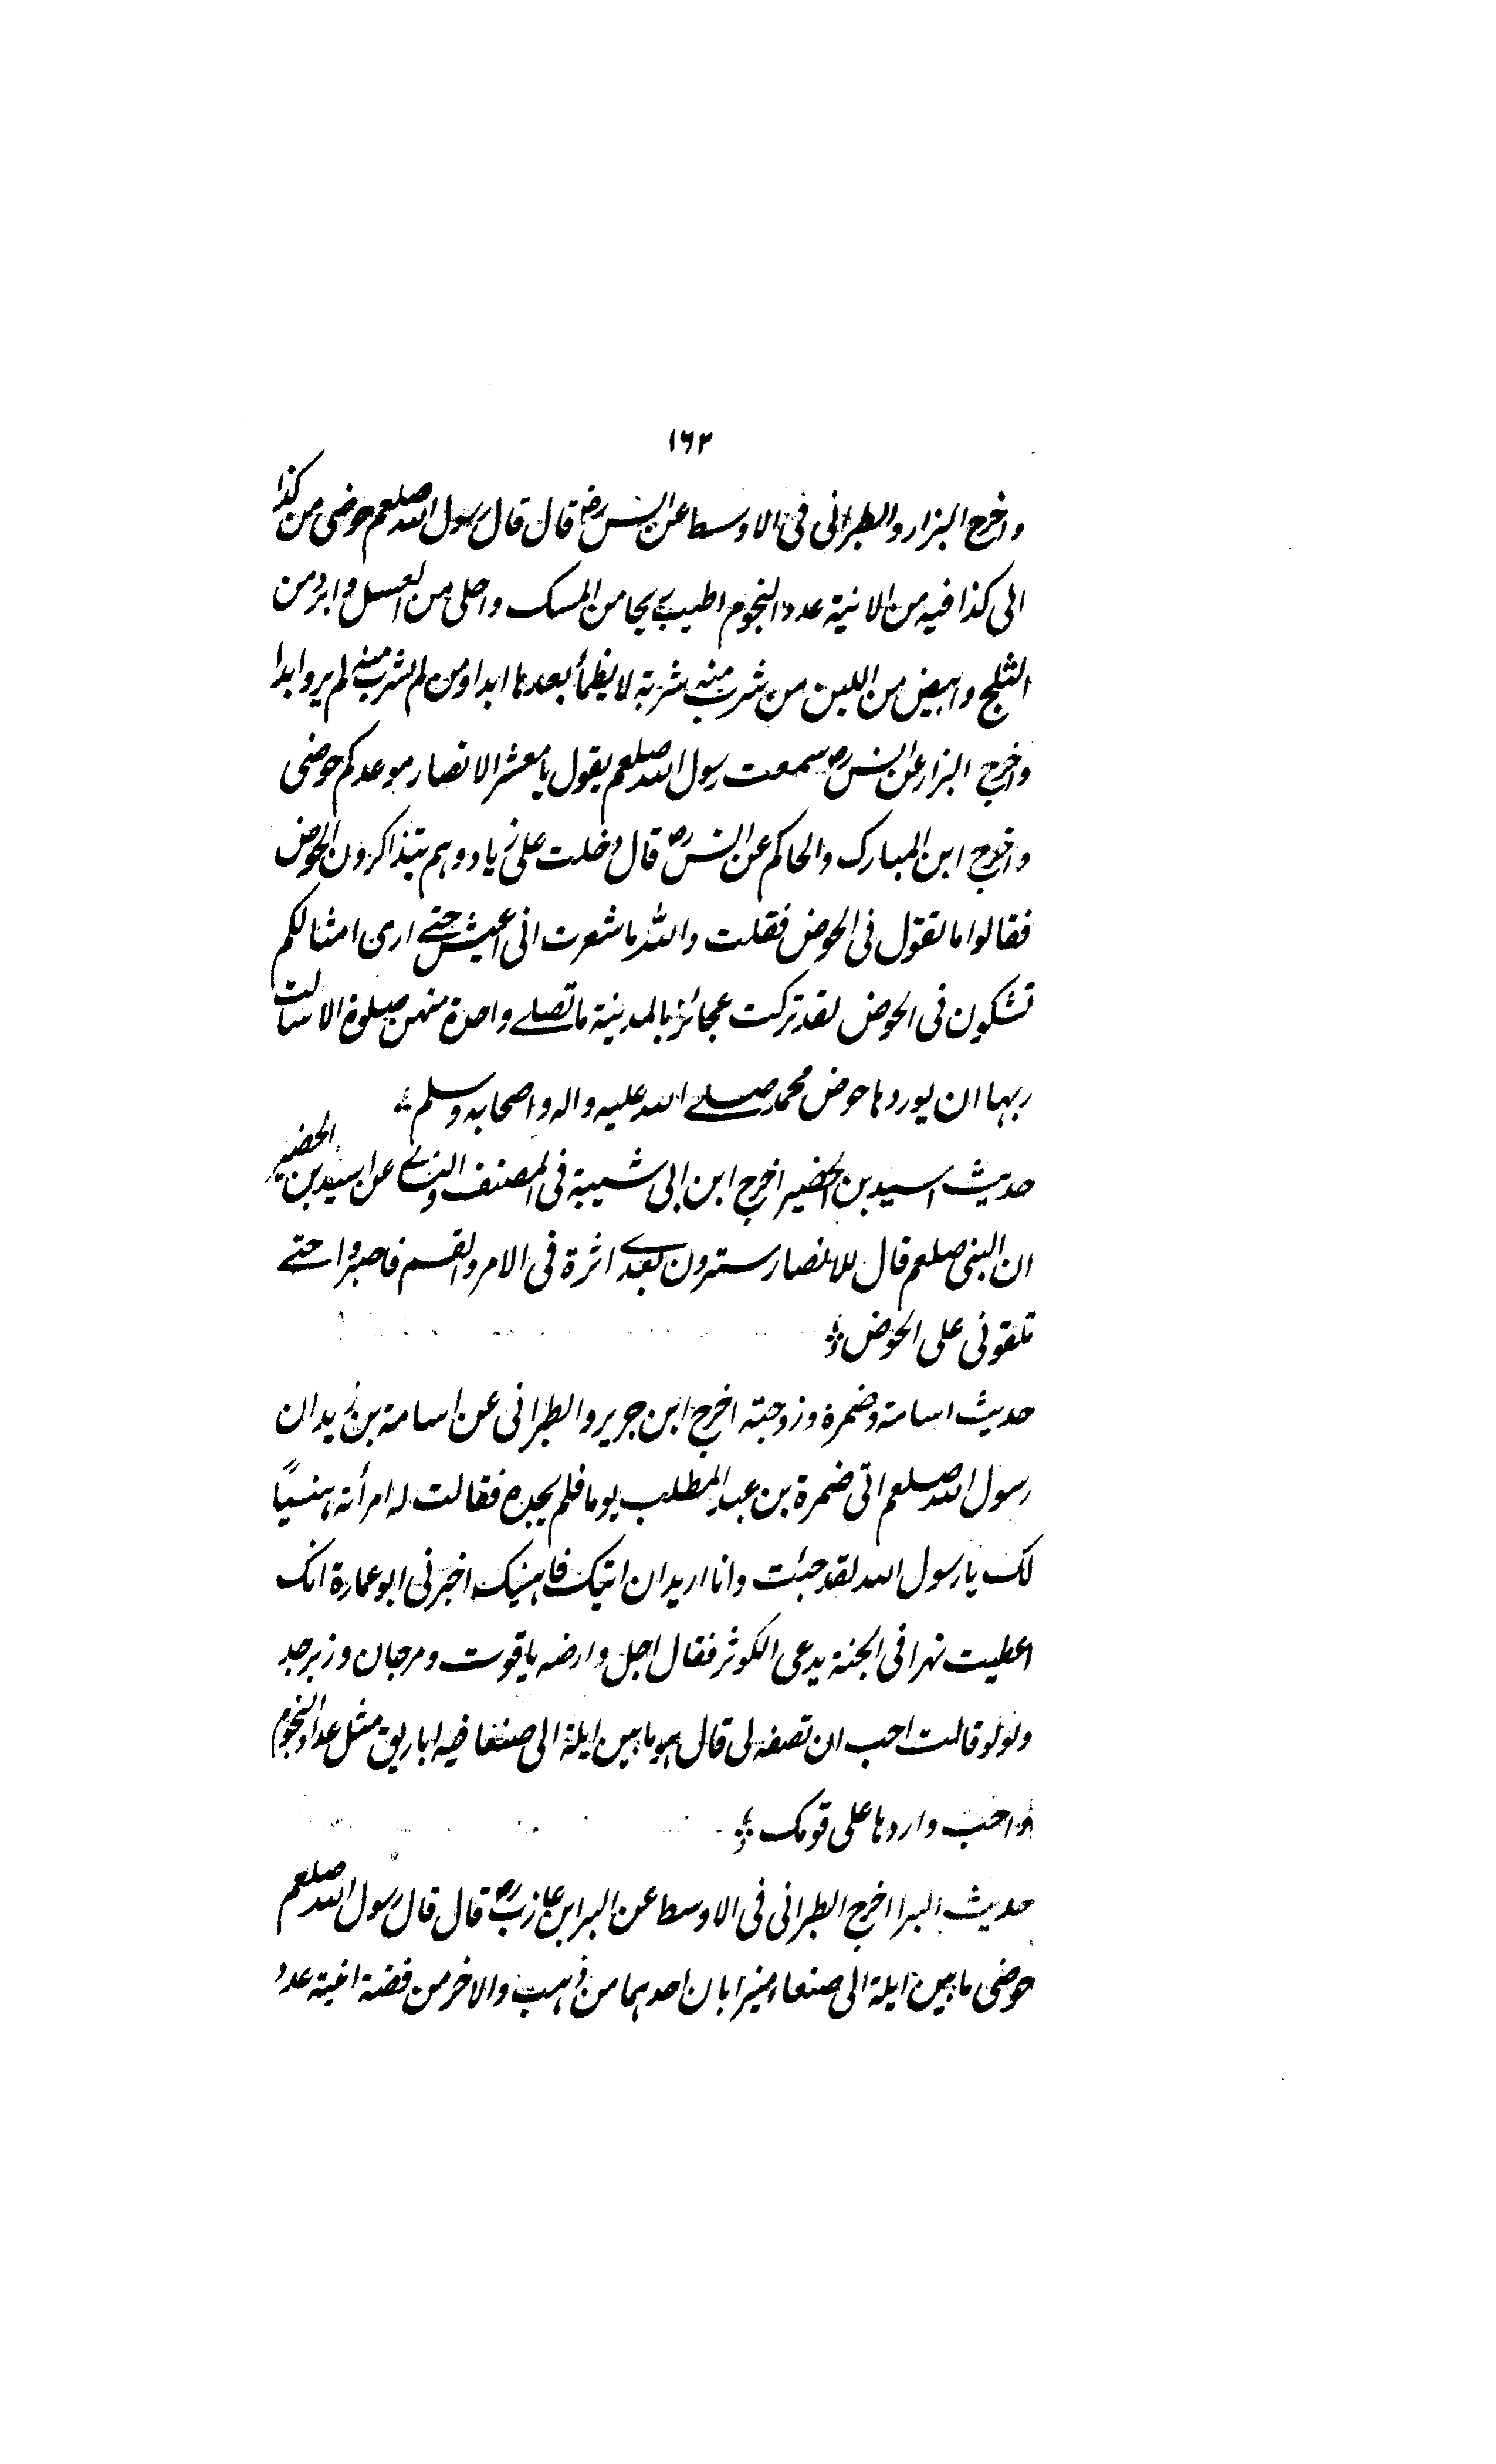 ١٦٢
واخرج البزار والطبرانی فی الاوسط عن انس رض قال قال رسول الله صلعم حوضی من کذا
الی کذا فیه من الانیة عدد النجوم اطیب ریحا من المسک واحلی من العسل وابرد من
الثلج وابیض من اللبن من شرب منه شربة لا یظمأ بعدها ابدا ومن لم یشرب منه لم یرو ابدا
واخرج البزار عن انس رض سمعت رسول الله صلعم یقول یا معشر الانصار موعدکم حوضی
واخرج ابن المبارک والحاکم عن انس رض قال دخلت علی زیاد وهم یتذاکرون الحوض
فقالوا ما تقول فی الحوض فقلت والله ما شعرت انی اعیش حتے اری امثالکم
تشکون فی الحوض لقد ترکت عجائز بالمدینة ما تصلے واحدة منهن صلوة الا سالت
ربها ان یوردها حوض محمد صلے الله علیه واله واصحابه وسلم
حدیث اسید بن الحضیر اخرج ابن ابی شیبة فی المصنف والنسائے عن اسید بن الحضیر
ان النبی صلعم قال للانصار سترون بعدے اثرة فی الامر والقسم فاصبروا حتے
تلقونی علی الحوض
حدیث اسامة وضمرة وزوجته اخرج ابن جریر والطبرانی عن اسامة بن زید ان
رسول الله صلعم اتی ضمرة بن عبد المطلب یوما فلم یجده فقالت له امرأته هنیئًا
لک یا رسول الله لقد جئت وانا ارید ان اتیک فاهنیک اخبرنی ابو عمارة انک
اعطیت نهرا فی الجنة یدعی الکوثر فقال اجل وارضه یاقوت ومرجان وزبرجد
ولولو قالت احب ان تصفه لی قال هو ما بین ایلة الی صنعا فیه اباریق مثل عدد النجوم
واحب واردها علی قومک
حدیث البرا اخرج الطبرانی فی الاوسط عن البرا بن عازب رض قال قال رسول الله صلعم
حوضی ما بین ایلة الی صنعاء میزابان احدهما من ذهب والاخر من فضة انیة عدد